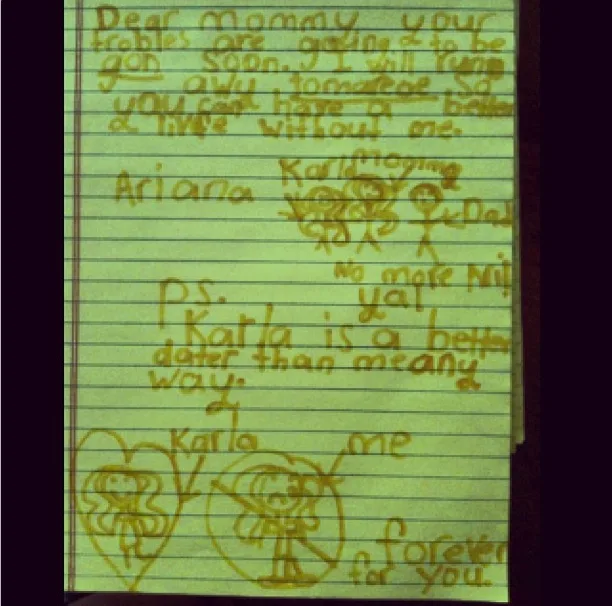 Dear mommy your
trobles are goying to be
gon soon. I will runn
awy tomareoe so
you can have a better
a life without me.
Karla mommy
Ariana
Dad
No more
ps. ya!
Karla is a better
dater than me any
way.
Karla me
forever
for you.